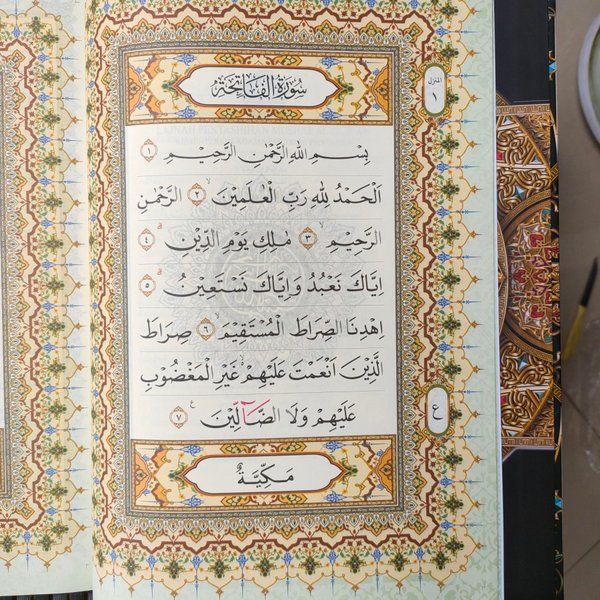 سُوْرَةُ الْفَاتِحَةِ
المنزل
١
بِسْمِ اللهِ الرَّحْمٰنِ الرَّحِيْمِ ١
اَلْحَمْدُ لِلهِ رَبِّ الْعٰلَمِيْنَ ٢ الرَّحْمٰنِ
الرَّحِيْمِ ٣ مٰلِكِ يَوْمِ الدِّيْنِ ٤
اِيَّاكَ نَعْبُدُ وَاِيَّاكَ نَسْتَعِيْنُ ٥
اِهْدِنَا الصِّرَاطَ الْمُسْتَقِيْمَ ٦ صِرَاطَ
الَّذِيْنَ اَنْعَمْتَ عَلَيْهِمْ غَيْرِ الْمَغْضُوْبِ
عَلَيْهِمْ وَلَا الضَّاۤلِّيْنَ ٧
ع
مَكِّيَّةٌ